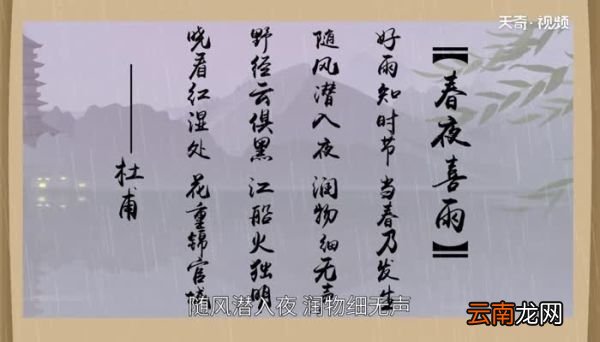 天奇·视频
【春夜喜雨】
好雨知时节 当春乃发生
随风潜入夜 润物细无声
野径云俱黑 江船火独明
晓看红湿处 花重锦官城
——杜甫
随风潜入夜 润物细无声
云南龙网